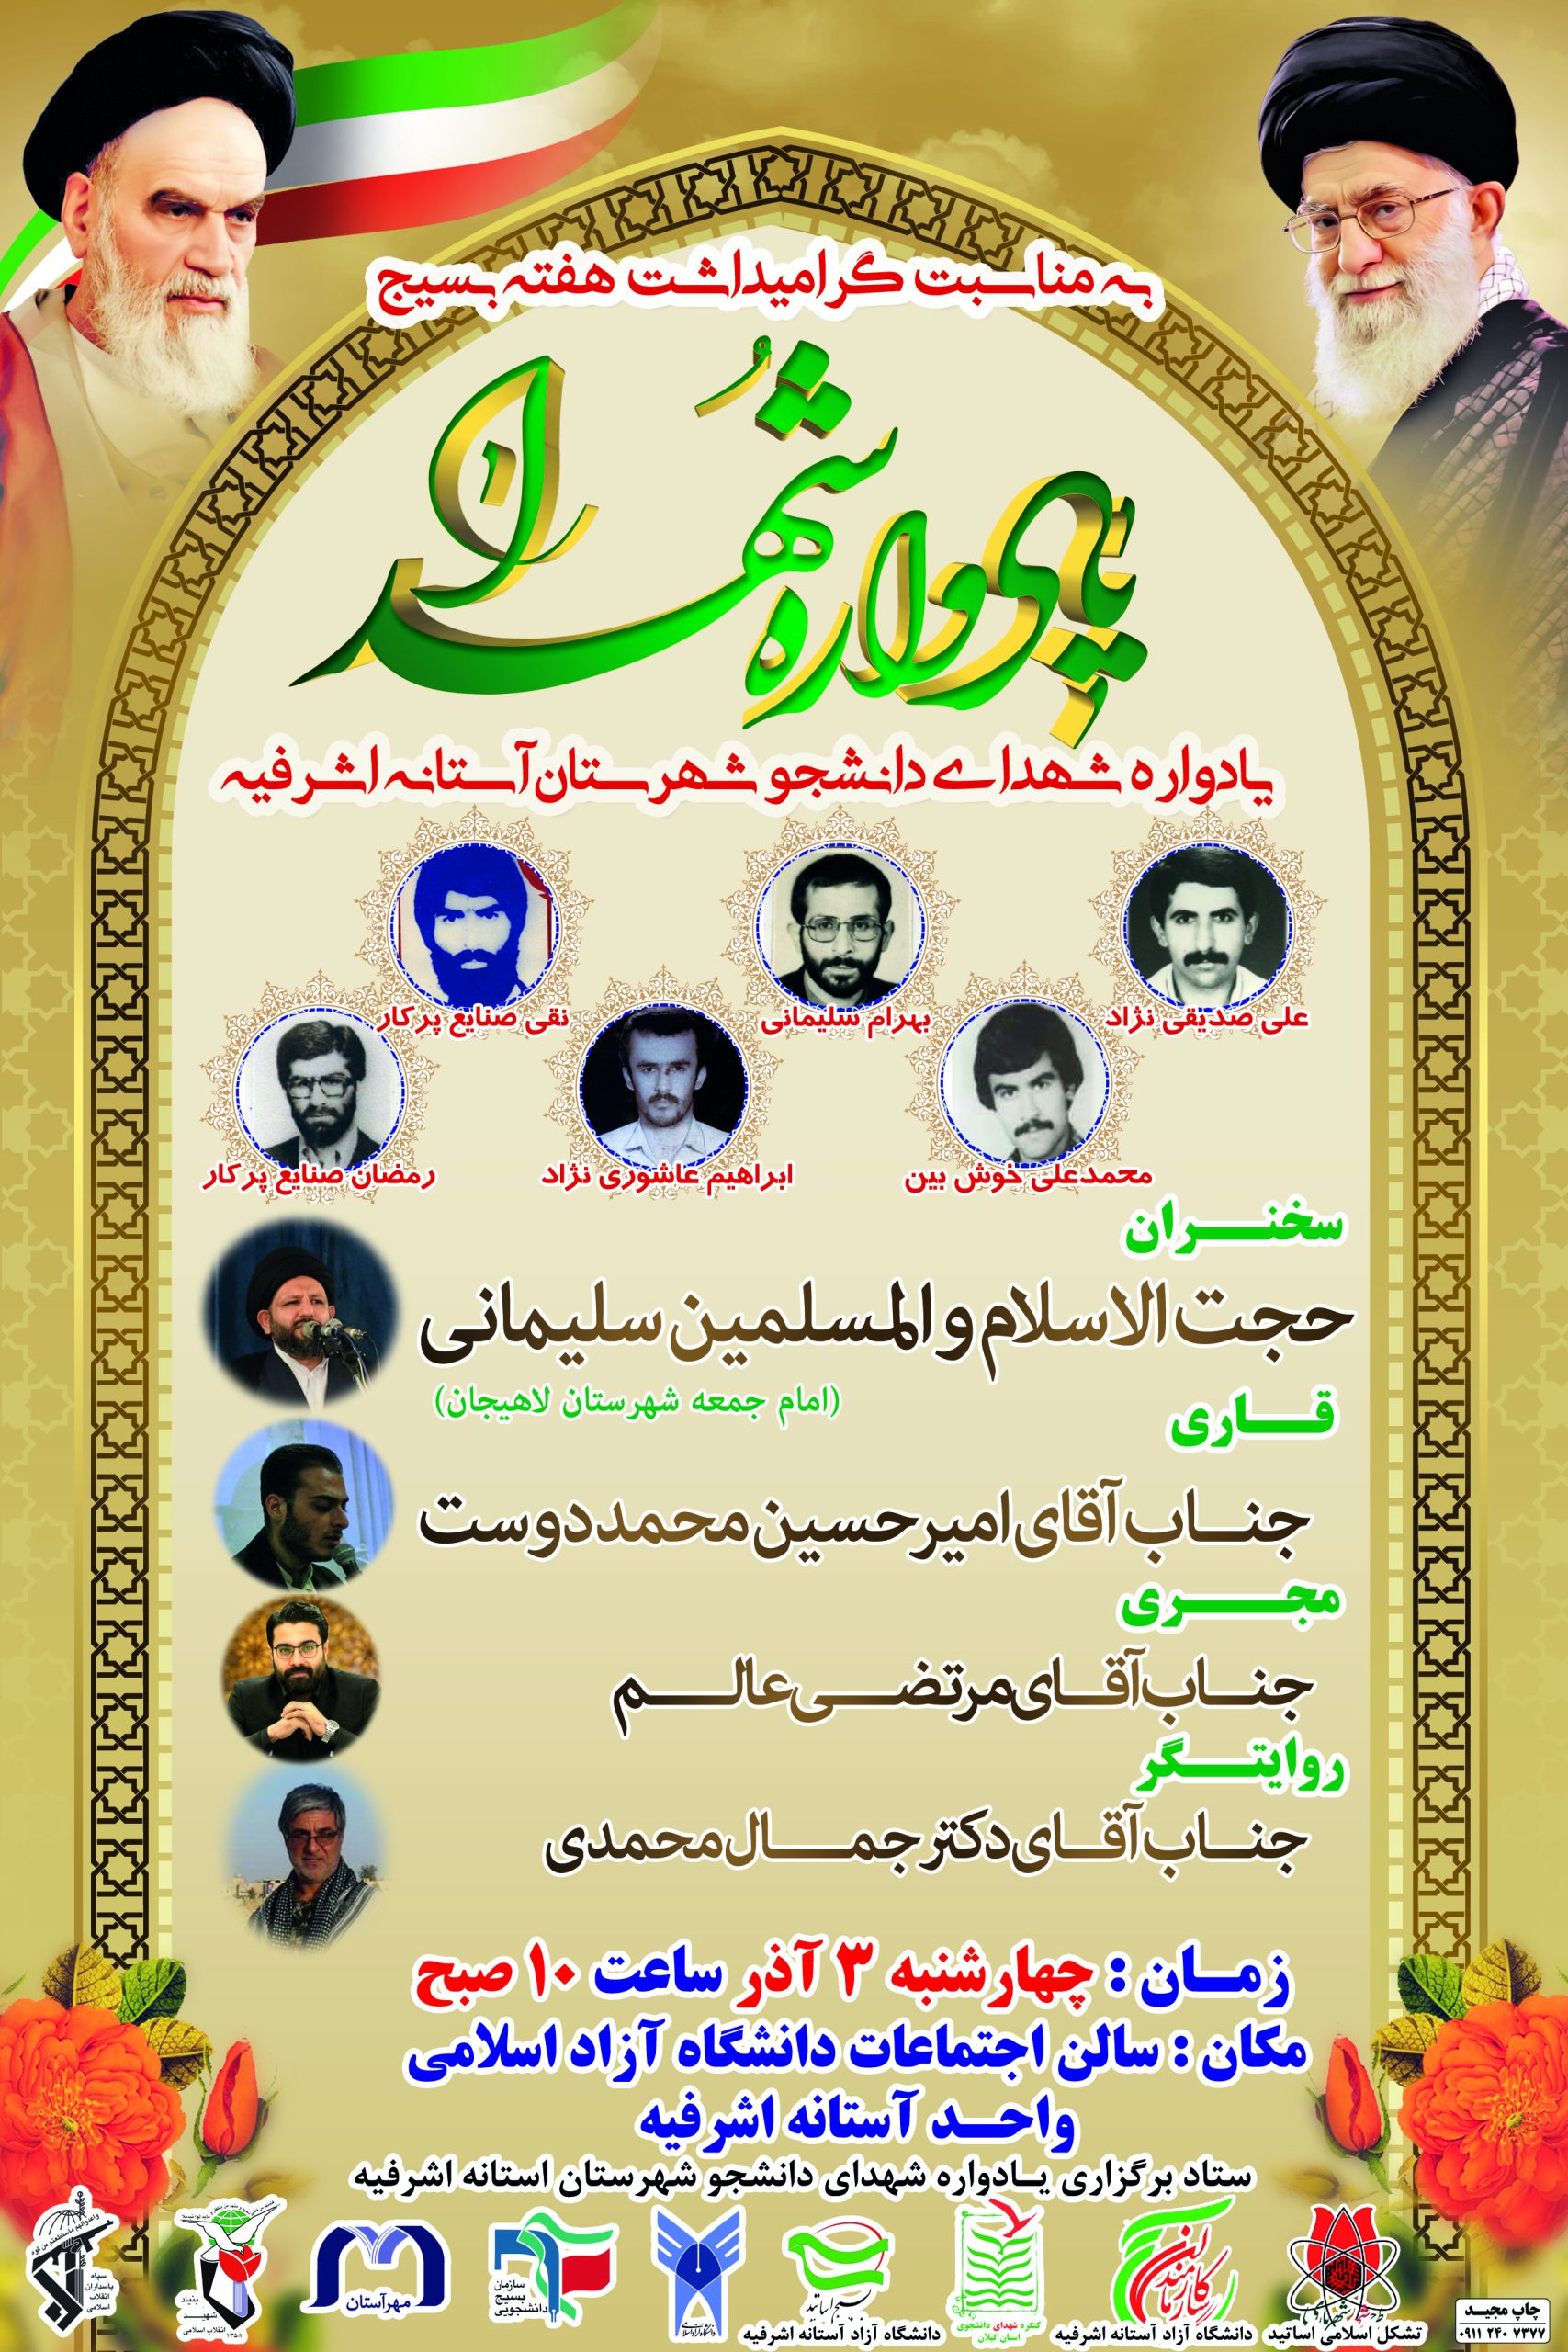 به مناسبت گرامیداشت هفته بسیج
یادواره شهدا
یادواره شهدای دانشجو شهرستان آستانه اشرفیه
علی صدیقی نژاد
بهرام سلیمانی
نقی صنایع پرکار
محمدعلی خوش بین
ابراهیم عاشوری نژاد
رمضان صنایع پرکار
سخنران
حجت الاسلام و المسلمین سلیمانی
(امام جمعه شهرستان لاهیجان)
قاری
جناب آقای امیرحسین محمددوست
مجری
جناب آقای مرتضی عالم
روایتگر
جناب آقای دکتر جمال محمدی
زمان : چهارشنبه ۳ آذر ساعت ۱۰ صبح
مکان : سالن اجتماعات دانشگاه آزاد اسلامی
واحد آستانه اشرفیه
ستاد برگزاری یادواره شهدای دانشجو شهرستان استانه اشرفیه
تشکل اسلامی اساتید
کارمندان
دانشگاه آزاد آستانه اشرفیه
کنگره شهدای دانشجوی
استان گیلان
بسیج اساتید
دانشگاه آزاد آستانه اشرفیه
سازمان
بسیج
دانشجویی
مهرآستان
بنیاد
شهید
انقلاب اسلامی
۱۳۵۸
سپاه
پاسداران
انقلاب
اسلامی
چاپ مجید
۰۹۱۱ ۲۴۰ ۷۳۷۷